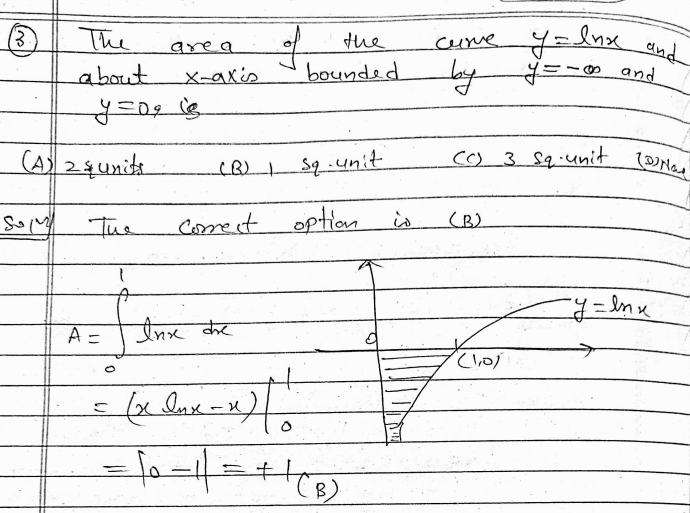 (3) The area of the curve y = lnx and
about x-axis bounded by y = -∞ and
y = 0, is
(A) 2 sq units (B) 1 sq. unit (C) 3 sq. unit (D) None
Sol^n The correct option is (B)
A = ∫₀¹ lnx dx
= (x lnx - x) |₀¹
= |0 - 1| = +1 (B)
0
y = lnx
(1,0)